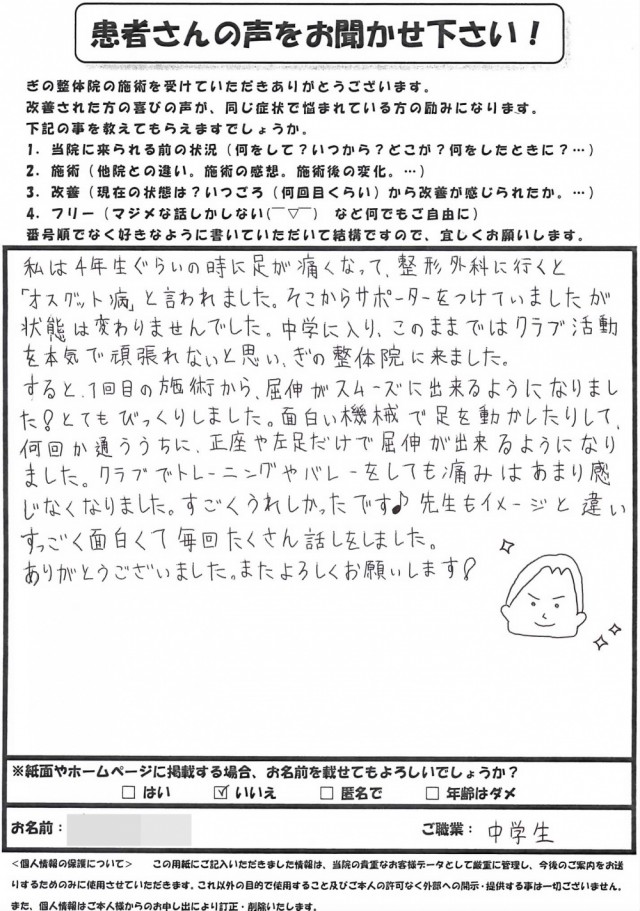 患者さんの声をお聞かせ下さい！
ぎの整体院の施術を受けていただきありがとうございます。
改善された方の喜びの声が、同じ症状で悩まれている方の励みになります。
下記の事を教えてもらえますでしょうか。
1．当院に来られる前の状況（何をして？いつから？どこが？何をしたときに？…）
2．施術（他院との違い。施術の感想。施術後の変化。…）
3．改善（現在の状態は？いつごろ（何回目くらい）から改善が感じられたか。…）
4．フリー（マジメな話しかしない(￣▽￣)　など何でもご自由に）
番号順でなく好きなように書いていただいて結構ですので、宜しくお願いします。
私は4年生ぐらいの時に足が痛くなって、整形外科に行くと
「オスグット病」と言われました。そこからサポーターをつけていましたが
状態は変わりませんでした。中学に入り、このままではクラブ活動
を本気で頑張れないと思い、ぎの整体院に来ました。
すると、1回目の施術から、屈伸がスムーズに出来るようになりまし
た！とてもびっくりしました。面白い機械で足を動かしたりして、
何回か通ううちに、正座や左足だけで屈伸が出来るようになり
ました。クラブでトレーニングやバレーをしても痛みはあまり感
じなくなりました。すごくうれしかったです♪先生もイメージと違い
すっごく面白くて毎回たくさん話しをしました。
ありがとうございました。またよろしくお願いします！
※紙面やホームページに掲載する場合、お名前を載せてもよろしいでしょうか？
□ はい　☑ いいえ　□ 匿名で　□ 年齢はダメ
お名前：　ご職業：中学生
＜個人情報の保護について＞　この用紙にご記入いただきました情報は、当院の貴重なお客様データとして厳重に管理し、今後のご案内をお送
りするためのみに使用させていただきます。これ以外の目的で使用すること及びご本人の許可なく外部への開示・提供する事は一切ございません。
また、個人情報はご本人様からのお申し出により訂正・削除いたします。